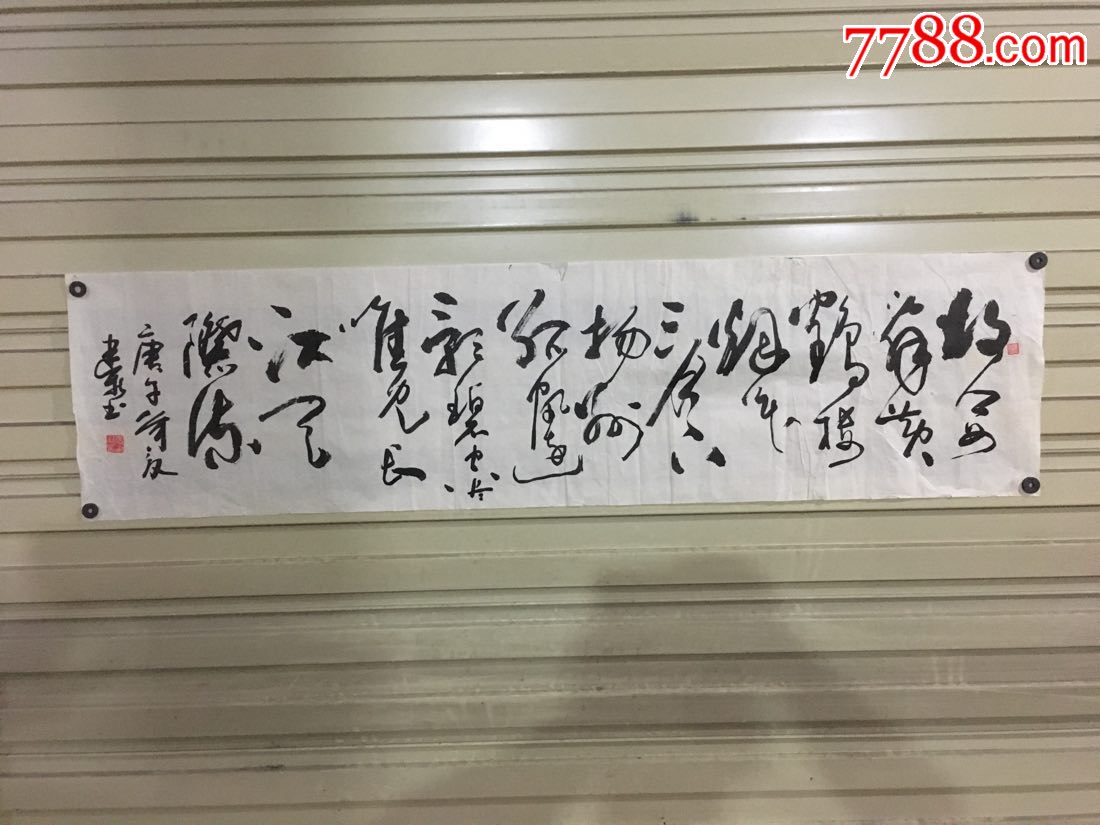 7788.com
故人西
辞黄
鹤楼
烟花
三月下
扬州
孤帆远
影碧空尽
唯见长
江天
际流
庚午
书